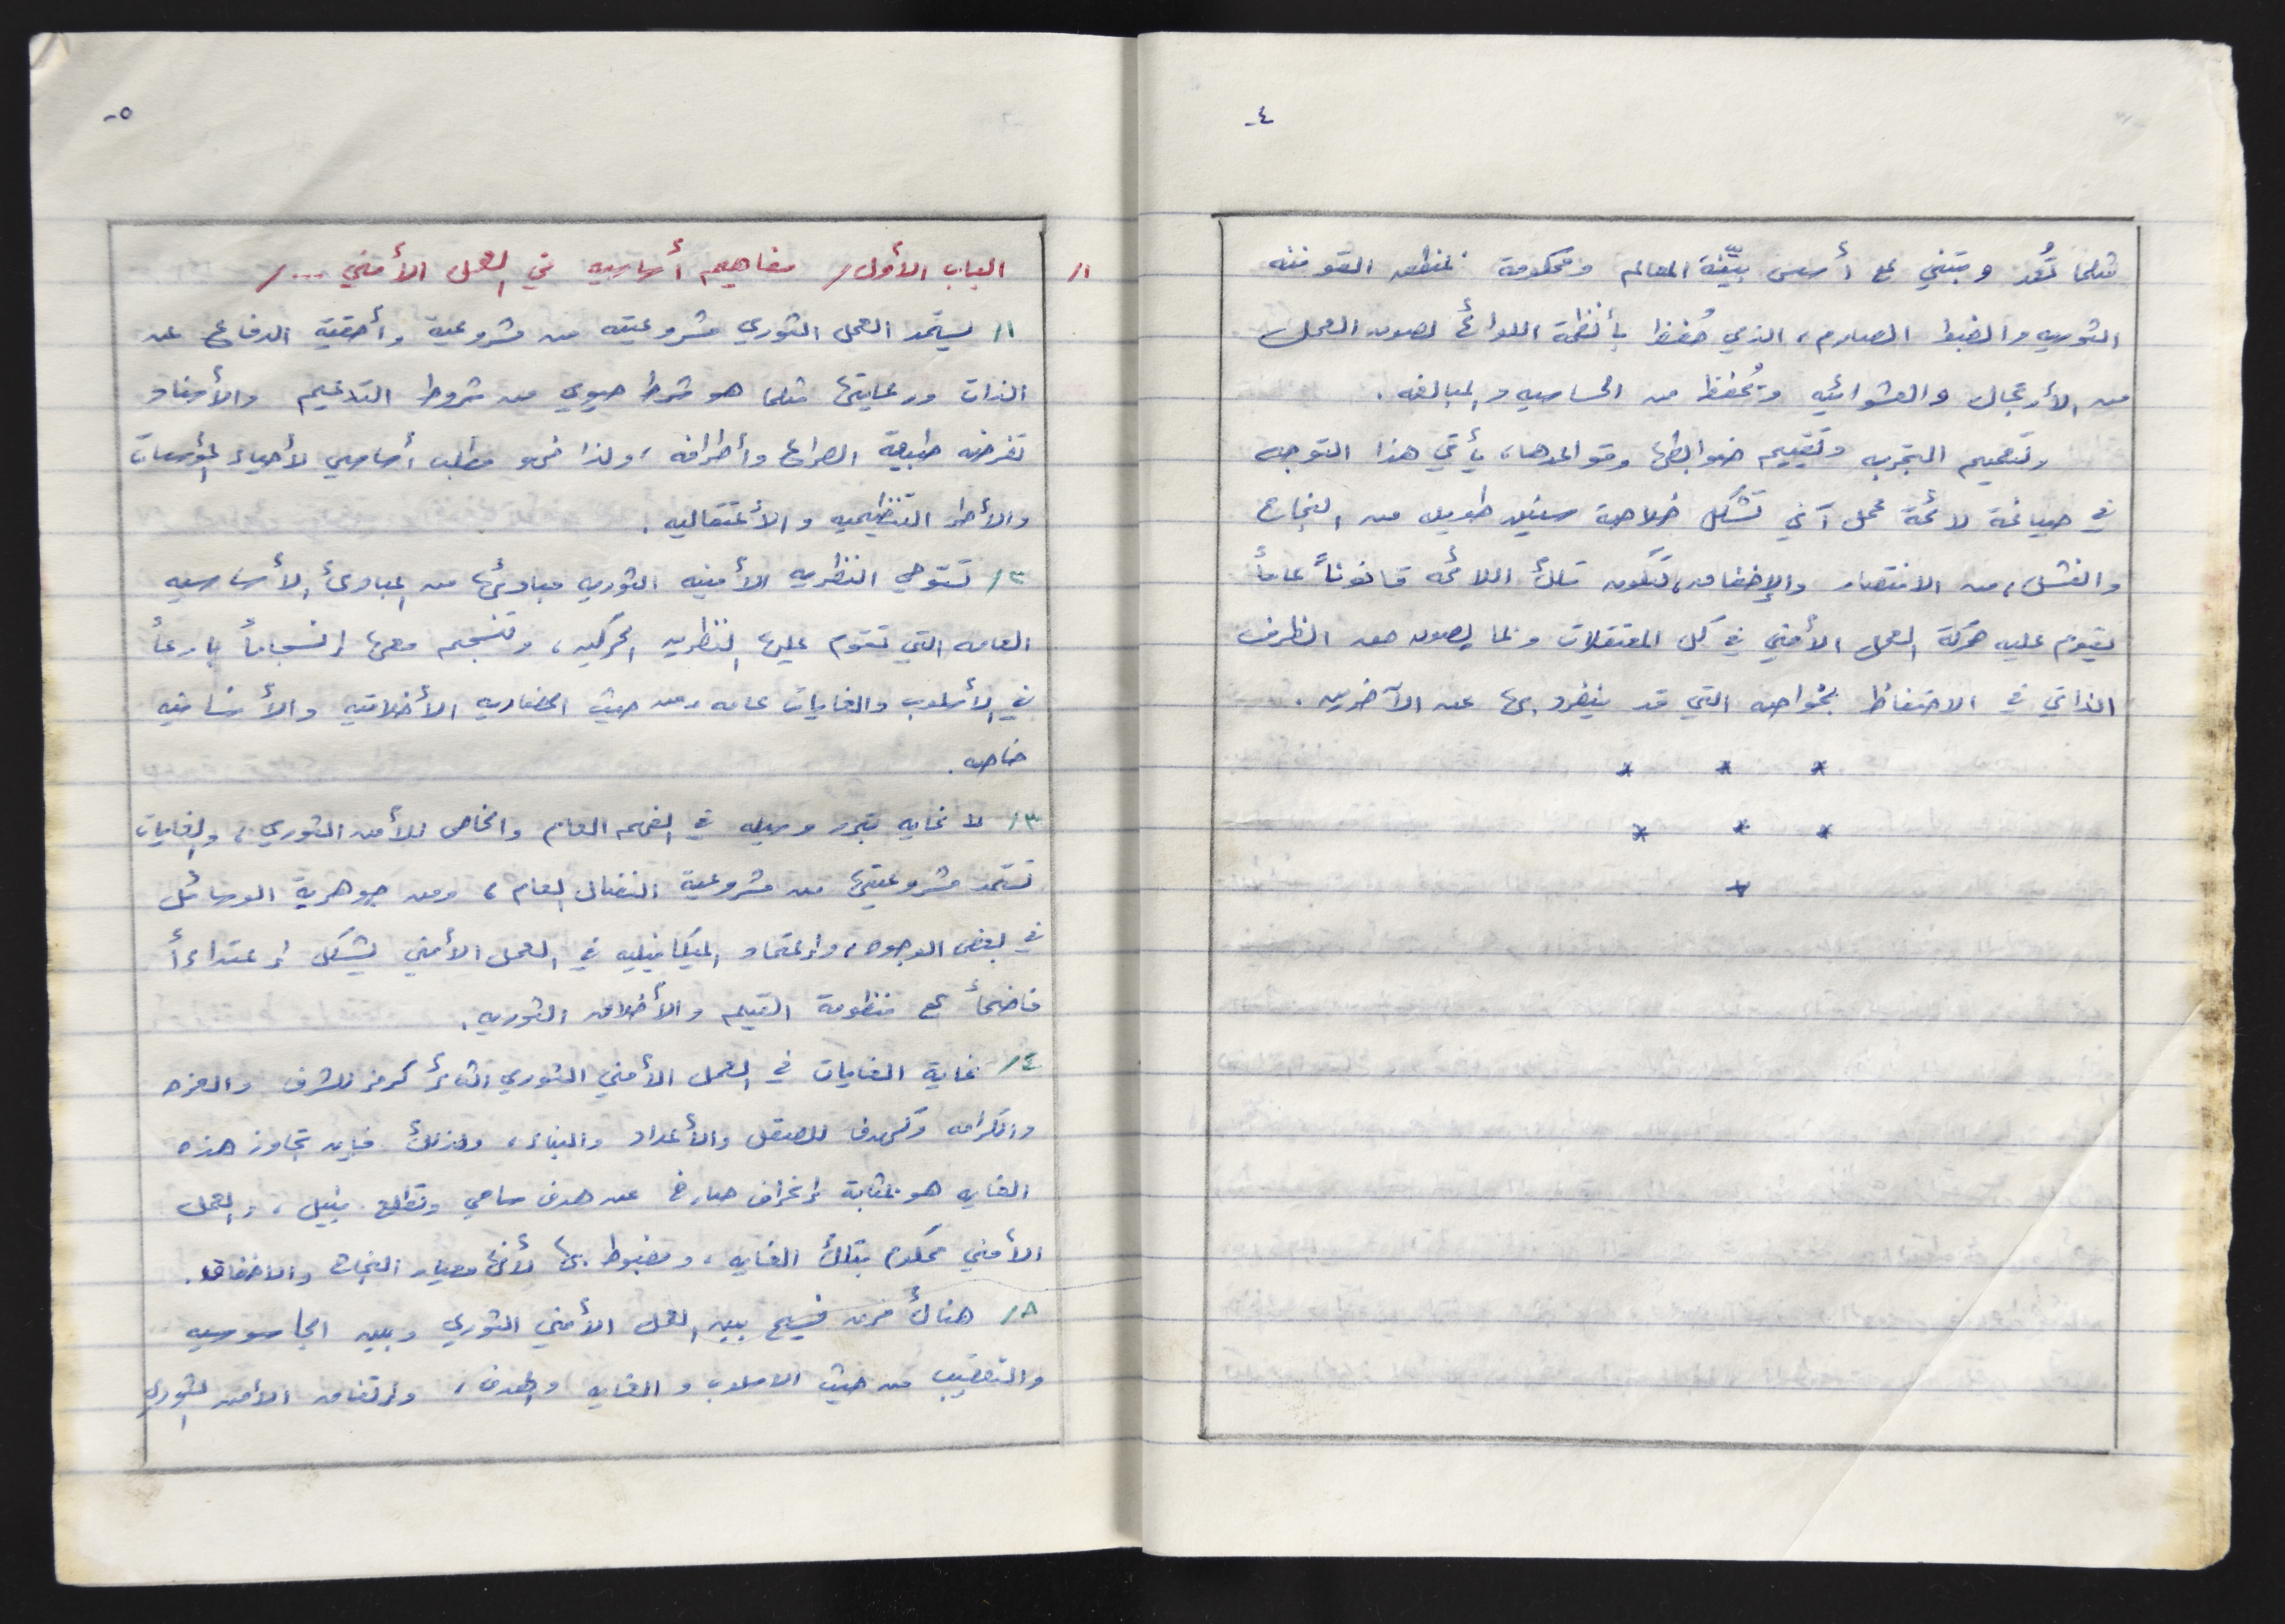 ٤-
مثلما تُعد وتبنى على أسس بيّنة المعالم ومحكومة لمنطق القوننه
الثوريه والضبط الصارم، الذي حُفظ بأنظمة اللوائح لصون العمل
من الأرتجال والعشوائيه وتُحفظ من الحساسيه والمبالغه.
ولتعميم التجربه وتقييم ضوابطها وقواعدها، يأتي هذا التوجه
في صياغة لائحة عمل آني تشكل خلاصة سنين طويله من النجاح
والفشل، من الانتصار والإخفاق، لتكون تلك اللائحه قانوناً عاماً
يقوم عليه حركة العمل الأمني في كل المعتقلات وبما يصون حق الظرف
الذاتي في الاحتفاظ بخواصه التي قد ينفرد بها عن الآخرين.
* * *
* * *
*
٥-
١/ الباب الأول/ مفاهيم أساسيه في العمل الأمني .../
١/ يستمد العمل الثوري مشروعيته من مشروعية وأحقية الدفاع عن
الذات ورعايتها مثلما هو شرط حيوي من شروط التلاحيم والأمناد
تفرضه طبيعة الصراع وأطرافه، ولذا فهو مطلب أساسي لأحياء المؤسسات
والأطر التنظيميه والأعتقاليه.
٢/ تستوحي النظريه الأمنيه الثوريه مبادئها من المبادئ الأساسيه
العامه التي تقوم عليها النظريه الحركيه، وتنسجم معها إنسجاماً بارعاً
في الأسلوب والغايات عامه ومن حيث الحضاريه الأخلاقيه والأنسانيه
خاصه.
٣/ لا غايه تبرر وسيله في الفهم العام والخاص للأمن الثوري، والغايات
تستمد مشروعيتها من مشروعية النضال العام، ومن جوهرية الوسائل
في بعض الوجوه، وإعتماد الميكافيليه في العمل الأمني يشكل إعتداءاً
فاضحاً على منظومة القيم والأخلاق الثوريه.
٤/ غاية الغايات في العمل الأمني الثوري الثائر كرمز للشرف والعزه
والكرامه وكهدف للصقل والأعداد والبناء، ولذلك فإن تجاوز هذه
الغايه هو بمثابة إنحراف صارخ عن هدف سامي وتطلع نبيل، والعمل
الأمني محكوم بتلك الغايه، ومضبوط بها لأنها معيار النجاح والاخفاق.
٥/ هناك فرق فسيح بين العمل الأمني الثوري وبين الجاسوسيه
والتعقيب من حيث الاسلوب والغايه والهدف، وإرتفاق الأمن الثوري